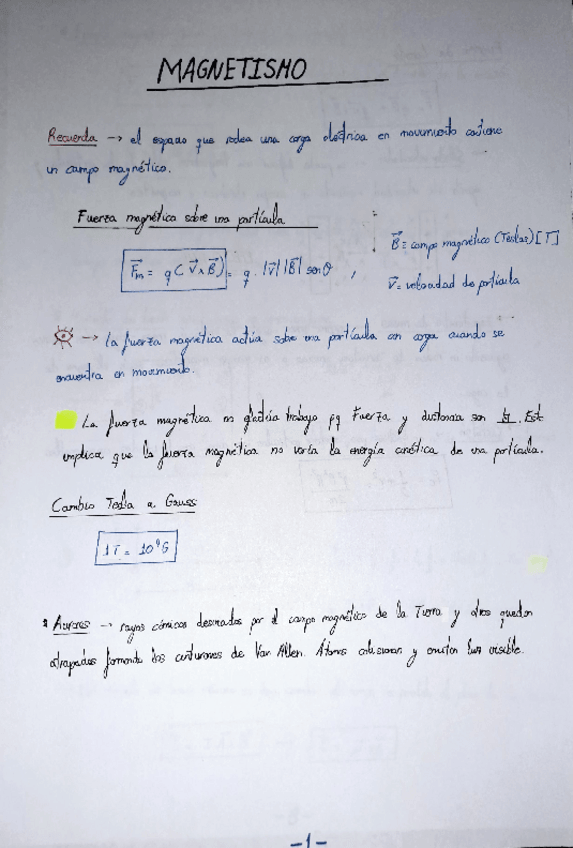 MAGNETISMO
Recuerda → el espacio que rodea una carga eléctrica en movimiento contiene
un campo magnético.
Fuerza magnética sobre una partícula
B⃗ = campo magnético (Teslas) [T]
F⃗m = q (v⃗ ∧ B⃗) = q · |v⃗| |B⃗| senθ ,
v⃗ = velocidad de partícula
→ la fuerza magnética actúa sobre una partícula con carga cuando se
encuentra en movimiento.
La fuerza magnética no efectúa trabajo pq Fuerza y distancia son ⊥. Esto
implica que la fuerza magnética no varía la energía cinética de una partícula.
Cambio Tesla a Gauss
1T = 10⁴G
Auroras → rayos cósmicos desviados por el campo magnético de la Tierra y otros quedan
atrapados formando los cinturones de Van Allen. Átomos colisionan y emiten luz visible.
-1-